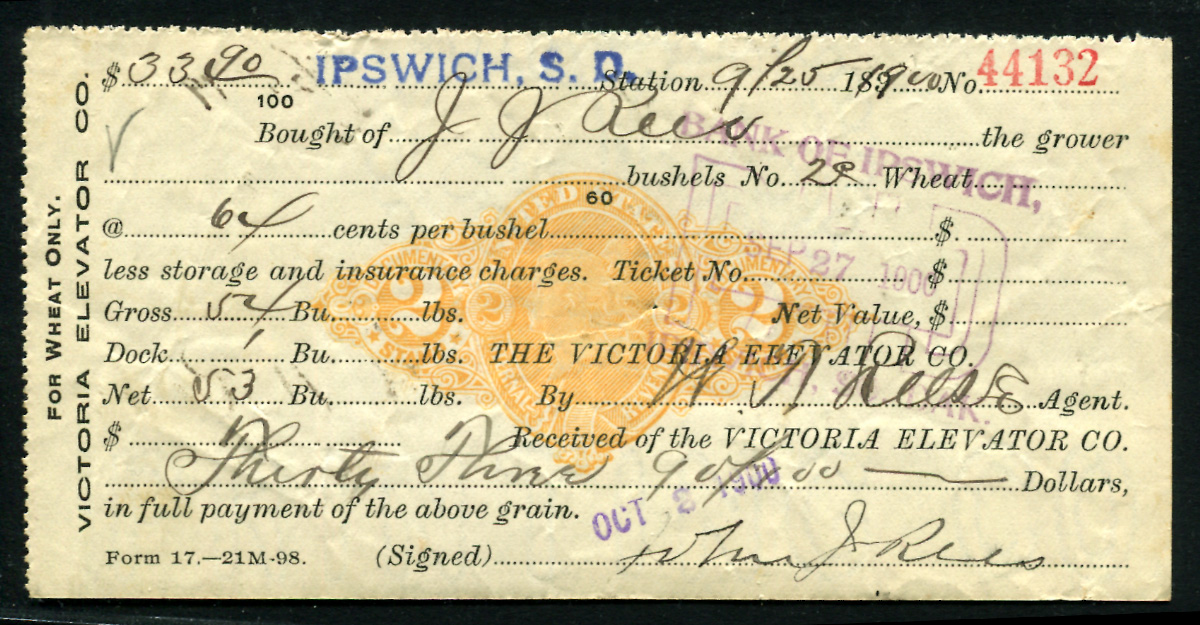 $33 90/100 IPSWICH, S. D. Station 9/25 1891900 No. 44132
Bought of J J Rees the grower
bushels No. 2 Wheat
60
@ 64 cents per bushel $
less storage and insurance charges. Ticket No. $
Gross 54 Bu. lbs. Net Value, $
Dock 1 Bu. lbs. THE VICTORIA ELEVATOR CO.
Net 53 Bu. lbs. By W N Reese Agent.
$ Received of the VICTORIA ELEVATOR CO.
Thirty Three 90/100 Dollars,
in full payment of the above grain.
Form 17.—21M-98. (Signed) John J Rees
FOR WHEAT ONLY.
VICTORIA ELEVATOR CO.
BANK OF IPSWICH,
SEP 27 1900
OCT 3 1900
DOCUMENTARY
2 2 2 2